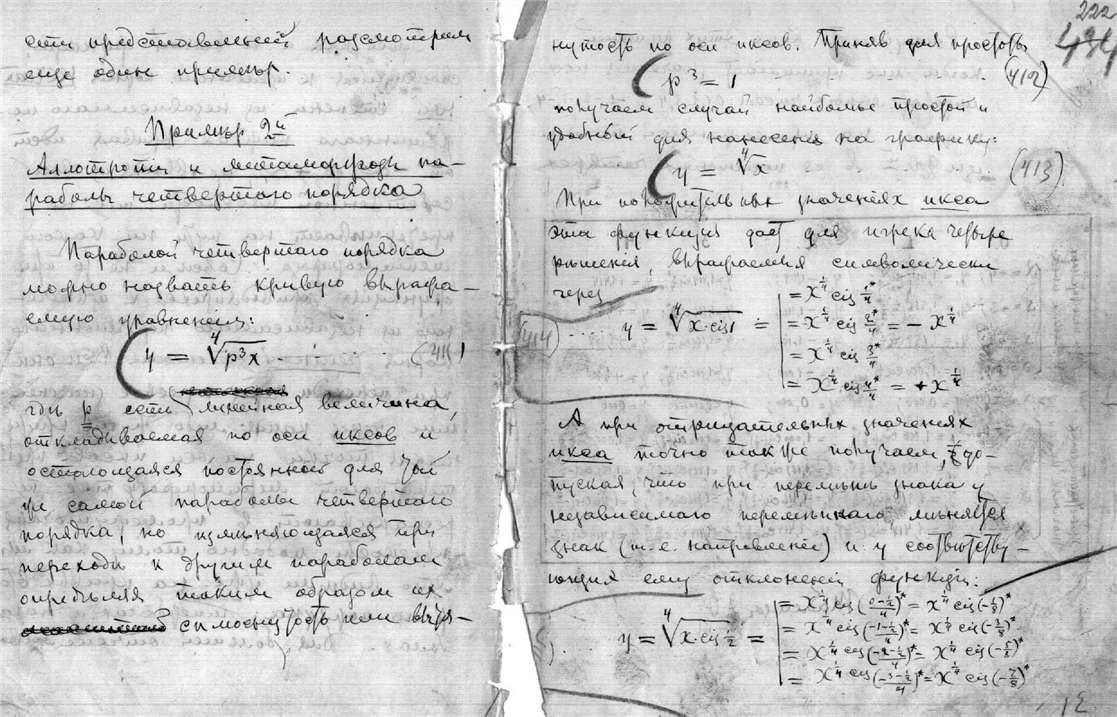 сти представленій разсмотримъ
еще одинъ примѣръ.
Примѣръ 2й
Аллотропіи и метаморфозы па-
раболы четвертаго порядка
Параболой четвертаго порядка
можно назвать кривую выража-
емую уравненіемъ:
y = ∜(p³x) (411)
гдѣ p есть линейная величина,
откладываемая по оси иксовъ и
остающаяся постоянной для той
же самой параболы четвертаго
порядка, но измѣняющаяся при
переходѣ къ другимъ параболамъ
опредѣляя такимъ образомъ ихъ
сплюснутость или вытя-
222
434
нутость по оси иксов. Принявъ для простоты
p³ = 1 (412)
получаемъ случай наиболѣе простой и
удобный для нанесенія на графику:
y = ∜x (413)
При положительныхъ значеніяхъ икса
эта функція даетъ для игрека четыре
рѣшенія, выражаемыя символически
через
(414) ..... y = ∜(x·cis 1) = | = x^¼ cis ¼*
= x^¼ cis 2/4* = − x^¼
= x^¼ cis 3/4*
= x^¼ cis 4/4* = + x^¼
А при отрицательныхъ значеніяхъ
икса точно такъ же получаемъ, до-
пуская, что при перемѣнѣ знака у
независимаго перемѣннаго мѣняется
знакъ (т.е. направленіе) и у соотвѣтству-
ющихъ ему отклоненій функціи:
) . . . y = ∜(x·cis ½) = | = x^¼ cis (0−½/4)* = x^¼ cis (−⅛)*
= x^¼ cis (−1−½/4)* = x^¼ cis (−3/8)*
= x^¼ cis (−2−½/4)* = x^¼ cis (−5/8)*
= x^¼ cis (−3−½/4)* = x^¼ cis (−7/8)*
12